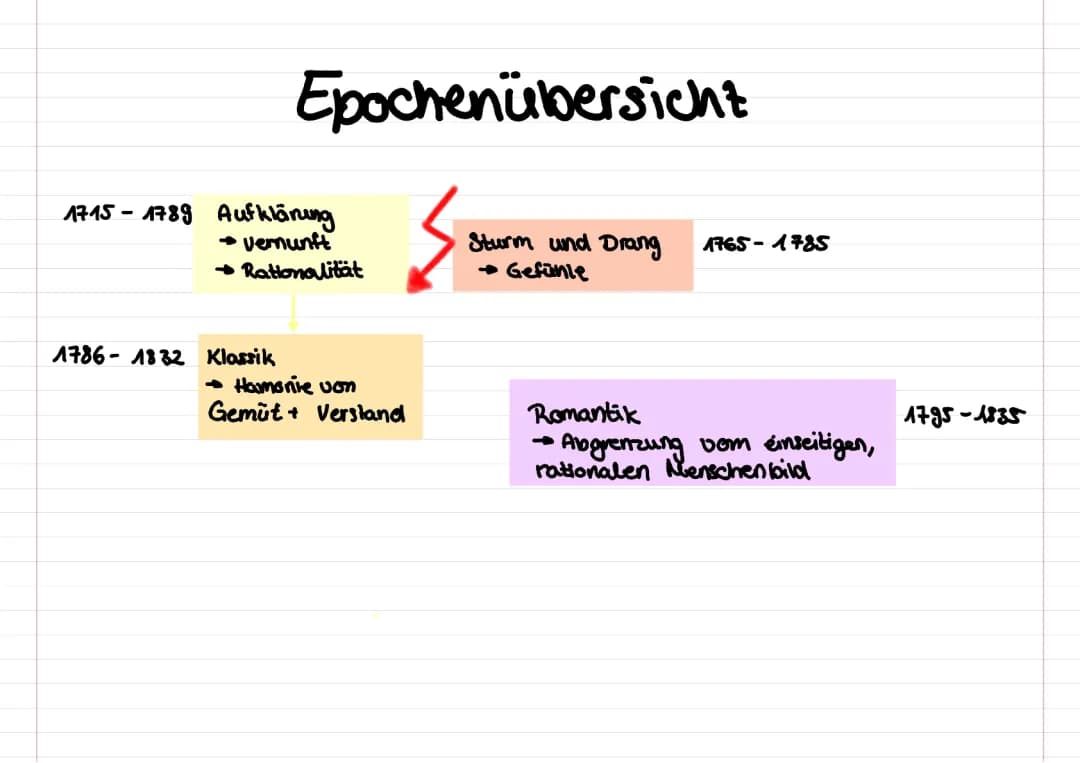 Epochenübersicht
1715 - 1789
Aufklärung
→ Vernunft
→ Rationalität
Sturm und Drang
→ Gefühle
1765 - 1785
1786 - 1832
Klassik
→ Harmonie von
Gemüt + Verstand
Romantik
→ Abgrenzung vom einseitigen,
rationalen Menschenbild
1795 - 1835